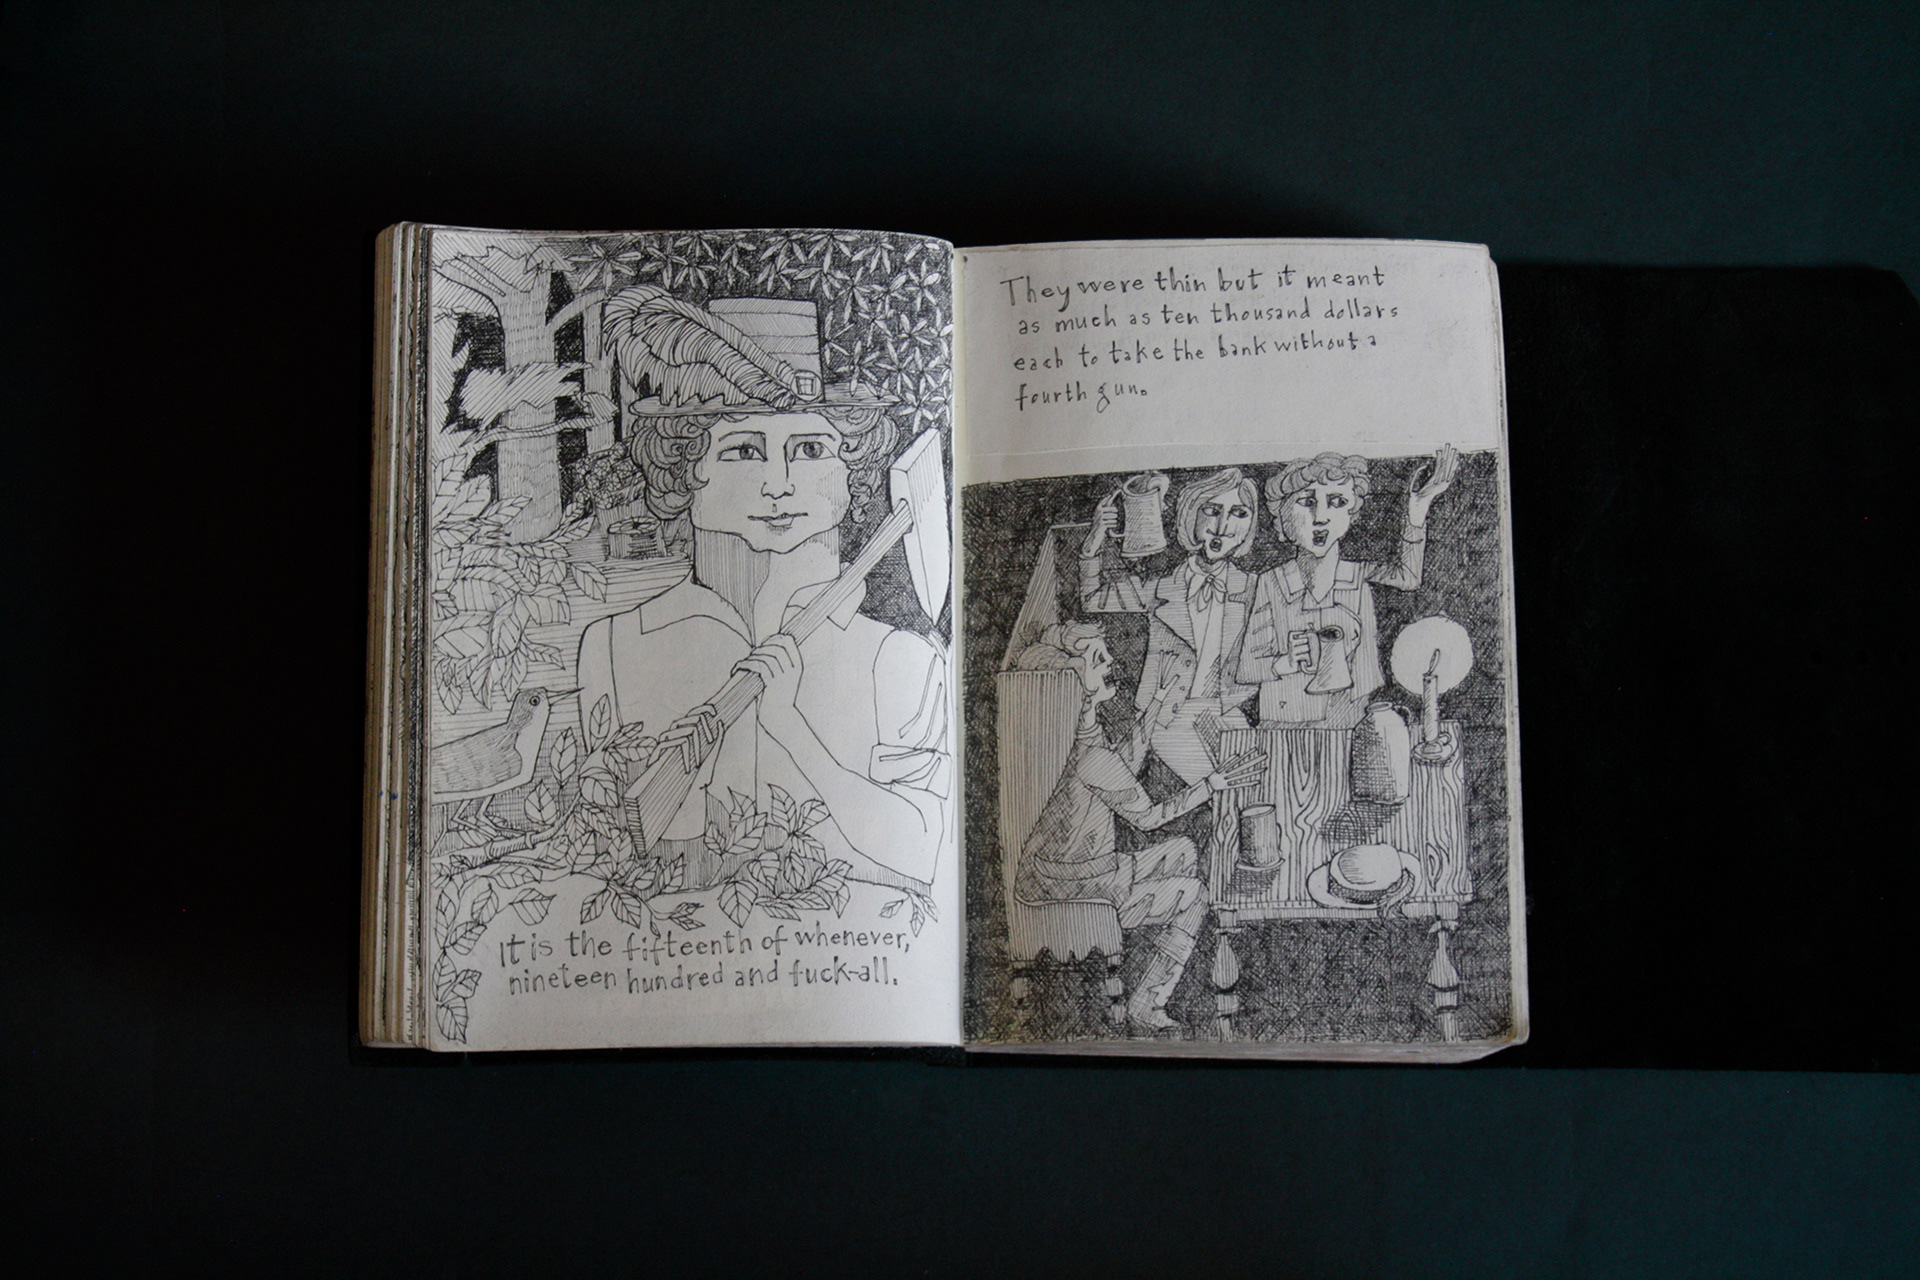 It is the fifteenth of whenever,
nineteen hundred and fuck-all.
They were thin but it meant
as much as ten thousand dollars
each to take the bank without a
fourth gun.